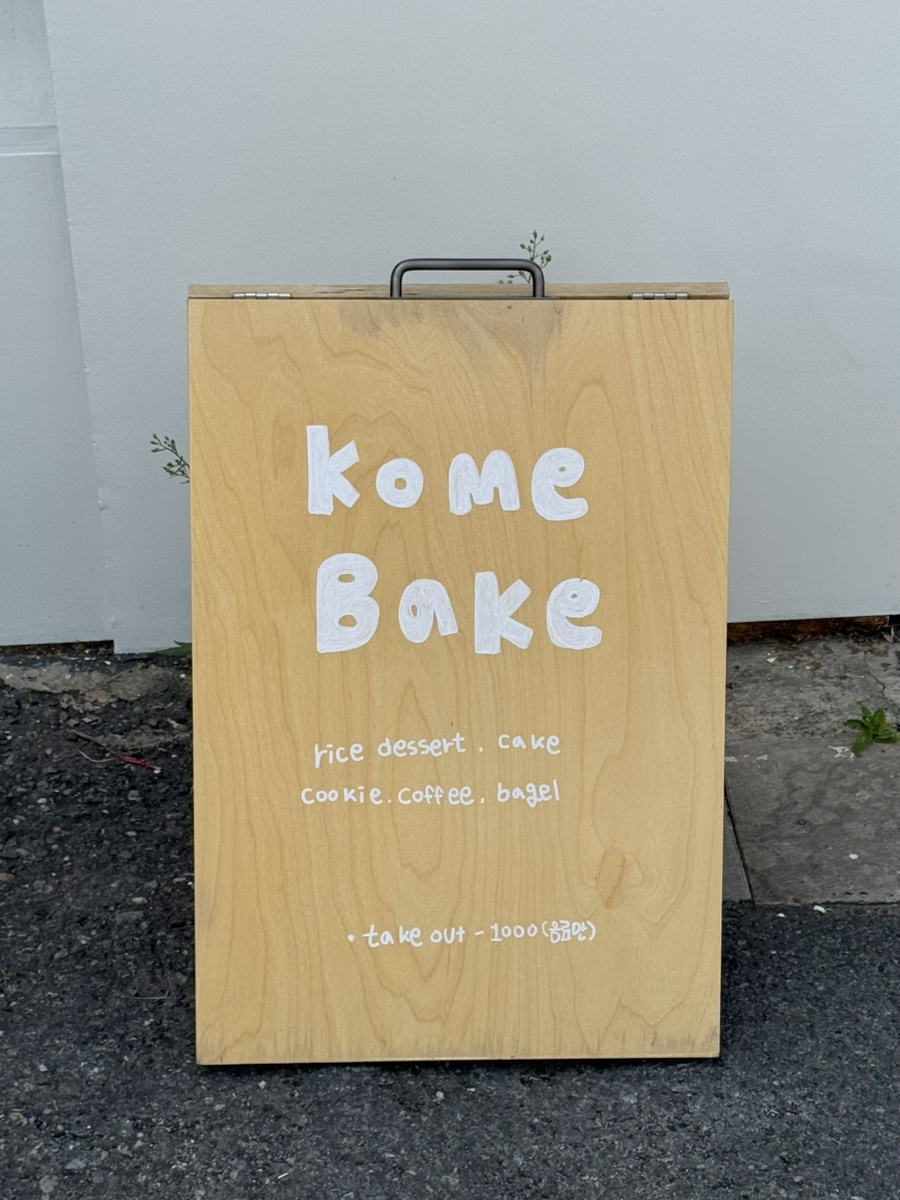 kome
Bake
rice dessert. cake
cookie. coffee. bagel
• take out - 1000 (음료만)